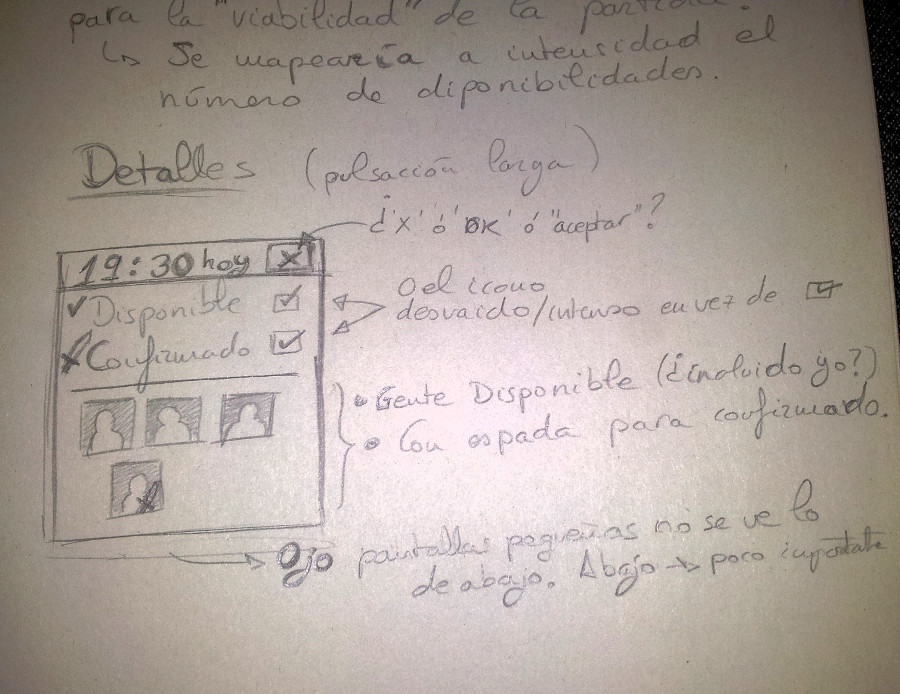 para la "viabilidad" de la partida.
↳ Se mapearía a intensidad el
número de diponibilidades.
Detalles (pulsación larga)
¿'X' ó 'OK' ó "aceptar"?
19:30 hoy X
✓ Disponible ☑
Confirmado ☑
O el icono
desvaido/intenso en vez de ☑
• Gente Disponible (¿incluido yo?)
• Con espada para confirmado.
→ Ojo pantallas pequeñas no se ve lo
de abajo. Abajo → poco importate